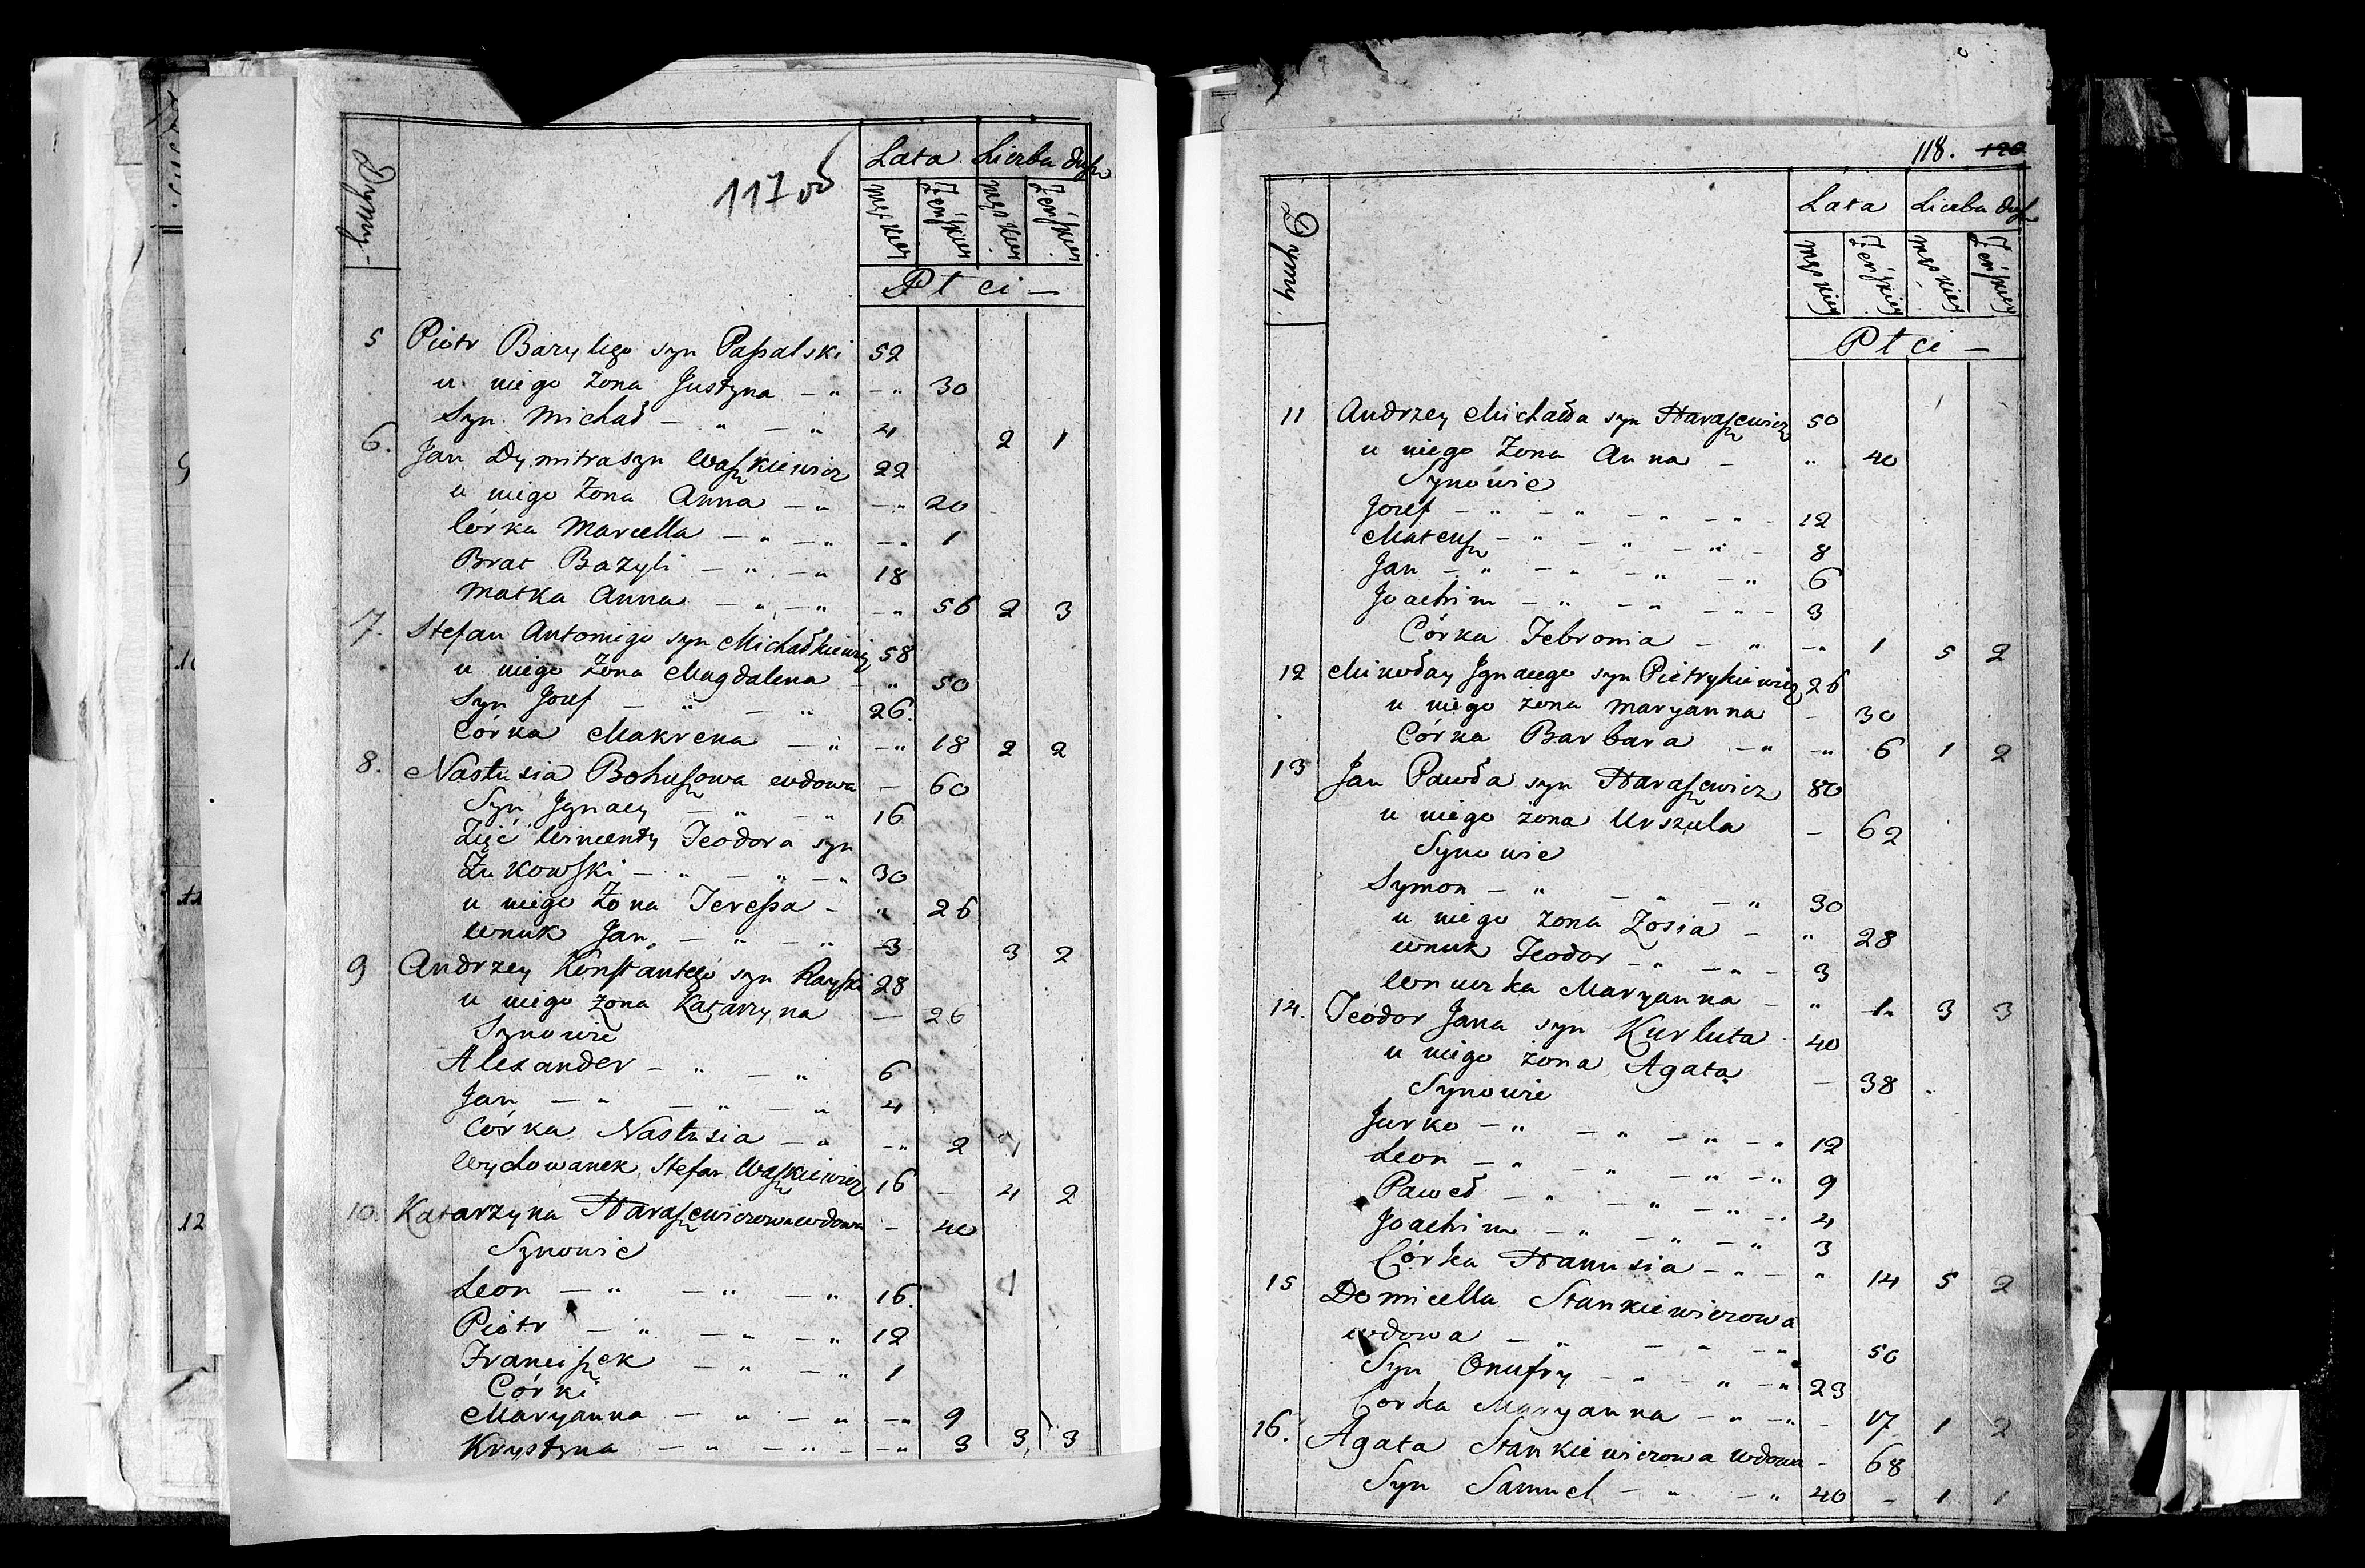 117 об
Dymy
Lata Liczba dusz
męzkiey Żeńskiey męzkiey Żeńskiey
Płci
5 Piotr Bazylego syn Passalski 52
u niego Żona Justyna 30
Syn Michał 4 2 1
6. Jan Dymitra syn Waszkiewicz 22
u niego Żona Anna 20
Córka Marcella 1
Brat Bazyli 18
Matka Anna 56 2 3
7. Stefan Antoniego syn Michałkiewicz 58
u niego Żona Magdalena 50
Syn Jozef 26.
Córka Makrena 18 2 2
8. Nastusia Bohuszowa wdowa 60
Syn Jgnacy 16
Zięć Wincenty Teodora syn
Żukowski 30
u niego Żona Teressa 26
Wnuk Jan 3 3 2
9 Andrzey Konstantego syn Rayski 28
u niego Żona Katarzyna 26
Synowie
Alexander 6
Jan 4
Córka Nastusia 2
Wychowanek Stefan Waszkiewicz 16 4 2
10. Katarzyna Haraszewiczowa wdowa 40
Synowie
Leon 16.
Piotr 12
Franciszek 1
Córki
Maryanna 9
Krystyna 3 3 3
118. 120
Dymy
Lata Liczba dusz
męzkiey Żeńskiey męzkiey Żeńskiey
Płci
11 Andrzey Michała syn Haraszewicz 50
u niego Żona Anna 40
Synowie
Jozef 12
Mateusz 8
Jan 6
Joachim 3
Córka Febronia 1 5 2
12 Mikołay Jgnacego syn Pietrykiewicz 26
u niego żona Maryanna 30
Córka Barbara 6 1 2
13 Jan Pawła syn Haraszewicz 80
u niego żona Urszula 62
Synowie
Symon 30
u niego żona Zosia 28
wnuk Teodor 3
Wnuczka Maryanna 1 3 3
14. Teodor Jana syn Kurluta 40
u niego żona Agata 38
Synowie
Jurko 12
Leon 9
Paweł 4
Joachim 3
Córka Hanusia 14 5 2
15 Domicella Stankiewiczowa
wdowa 50
Syn Onufry 23
Corka Maryanna 17 1 2
16. Agata Stankiewiczowa wdowa 68
Syn Samuel 40 1 1